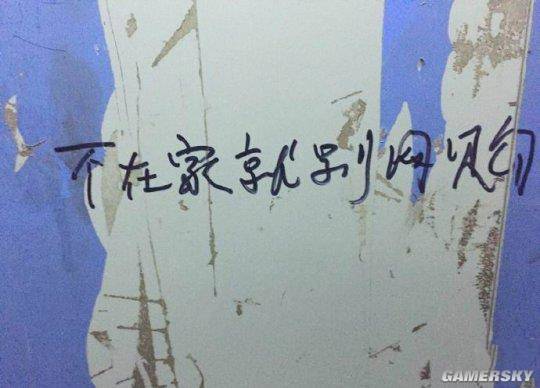 不在家就别网购
GAMERSKY